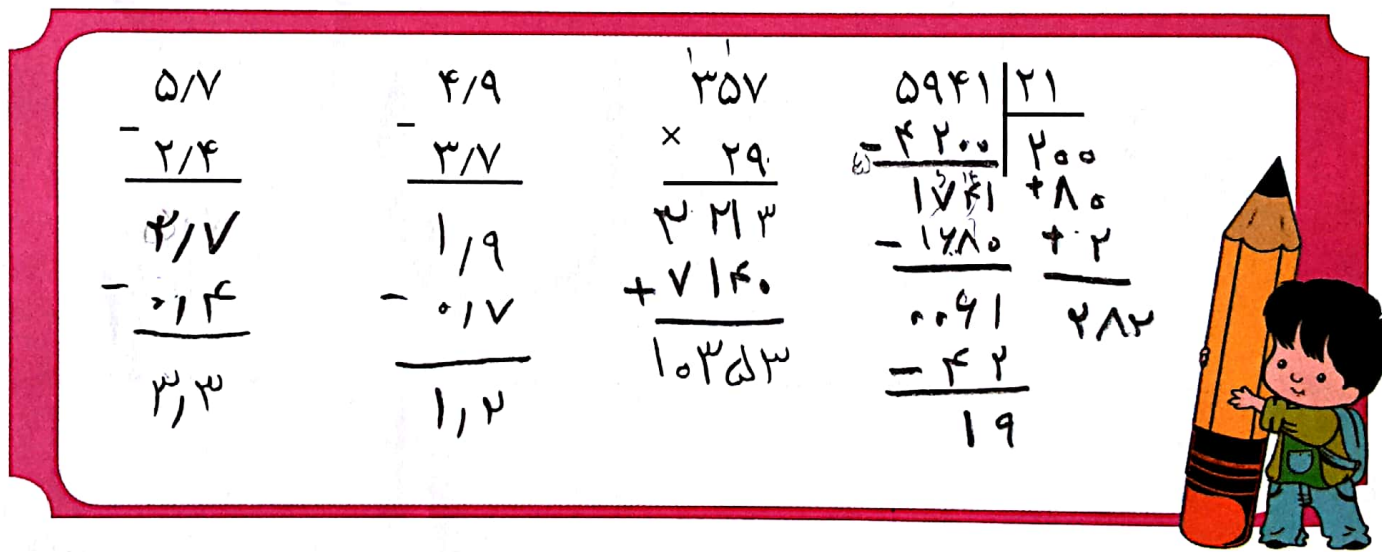 ۵/۷
- ۲/۴
۳/۷
- ۰/۴
۳/۳
۴/۹
- ۳/۷
۱/۹
- ۰/۷
۱/۲
۱ ۱
۳۵۷
× ۲۹
۳۲۱۳
+ ۷۱۴۰
۱۰۳۵۳
۵۹۴۱ | ۲۱
- ۴۲۰۰ ۲۰۰
۱۷۴۱ + ۸۰
- ۱۶۸۰ + ۲
۰۰۶۱ ۲۸۲
- ۴۲
۱۹